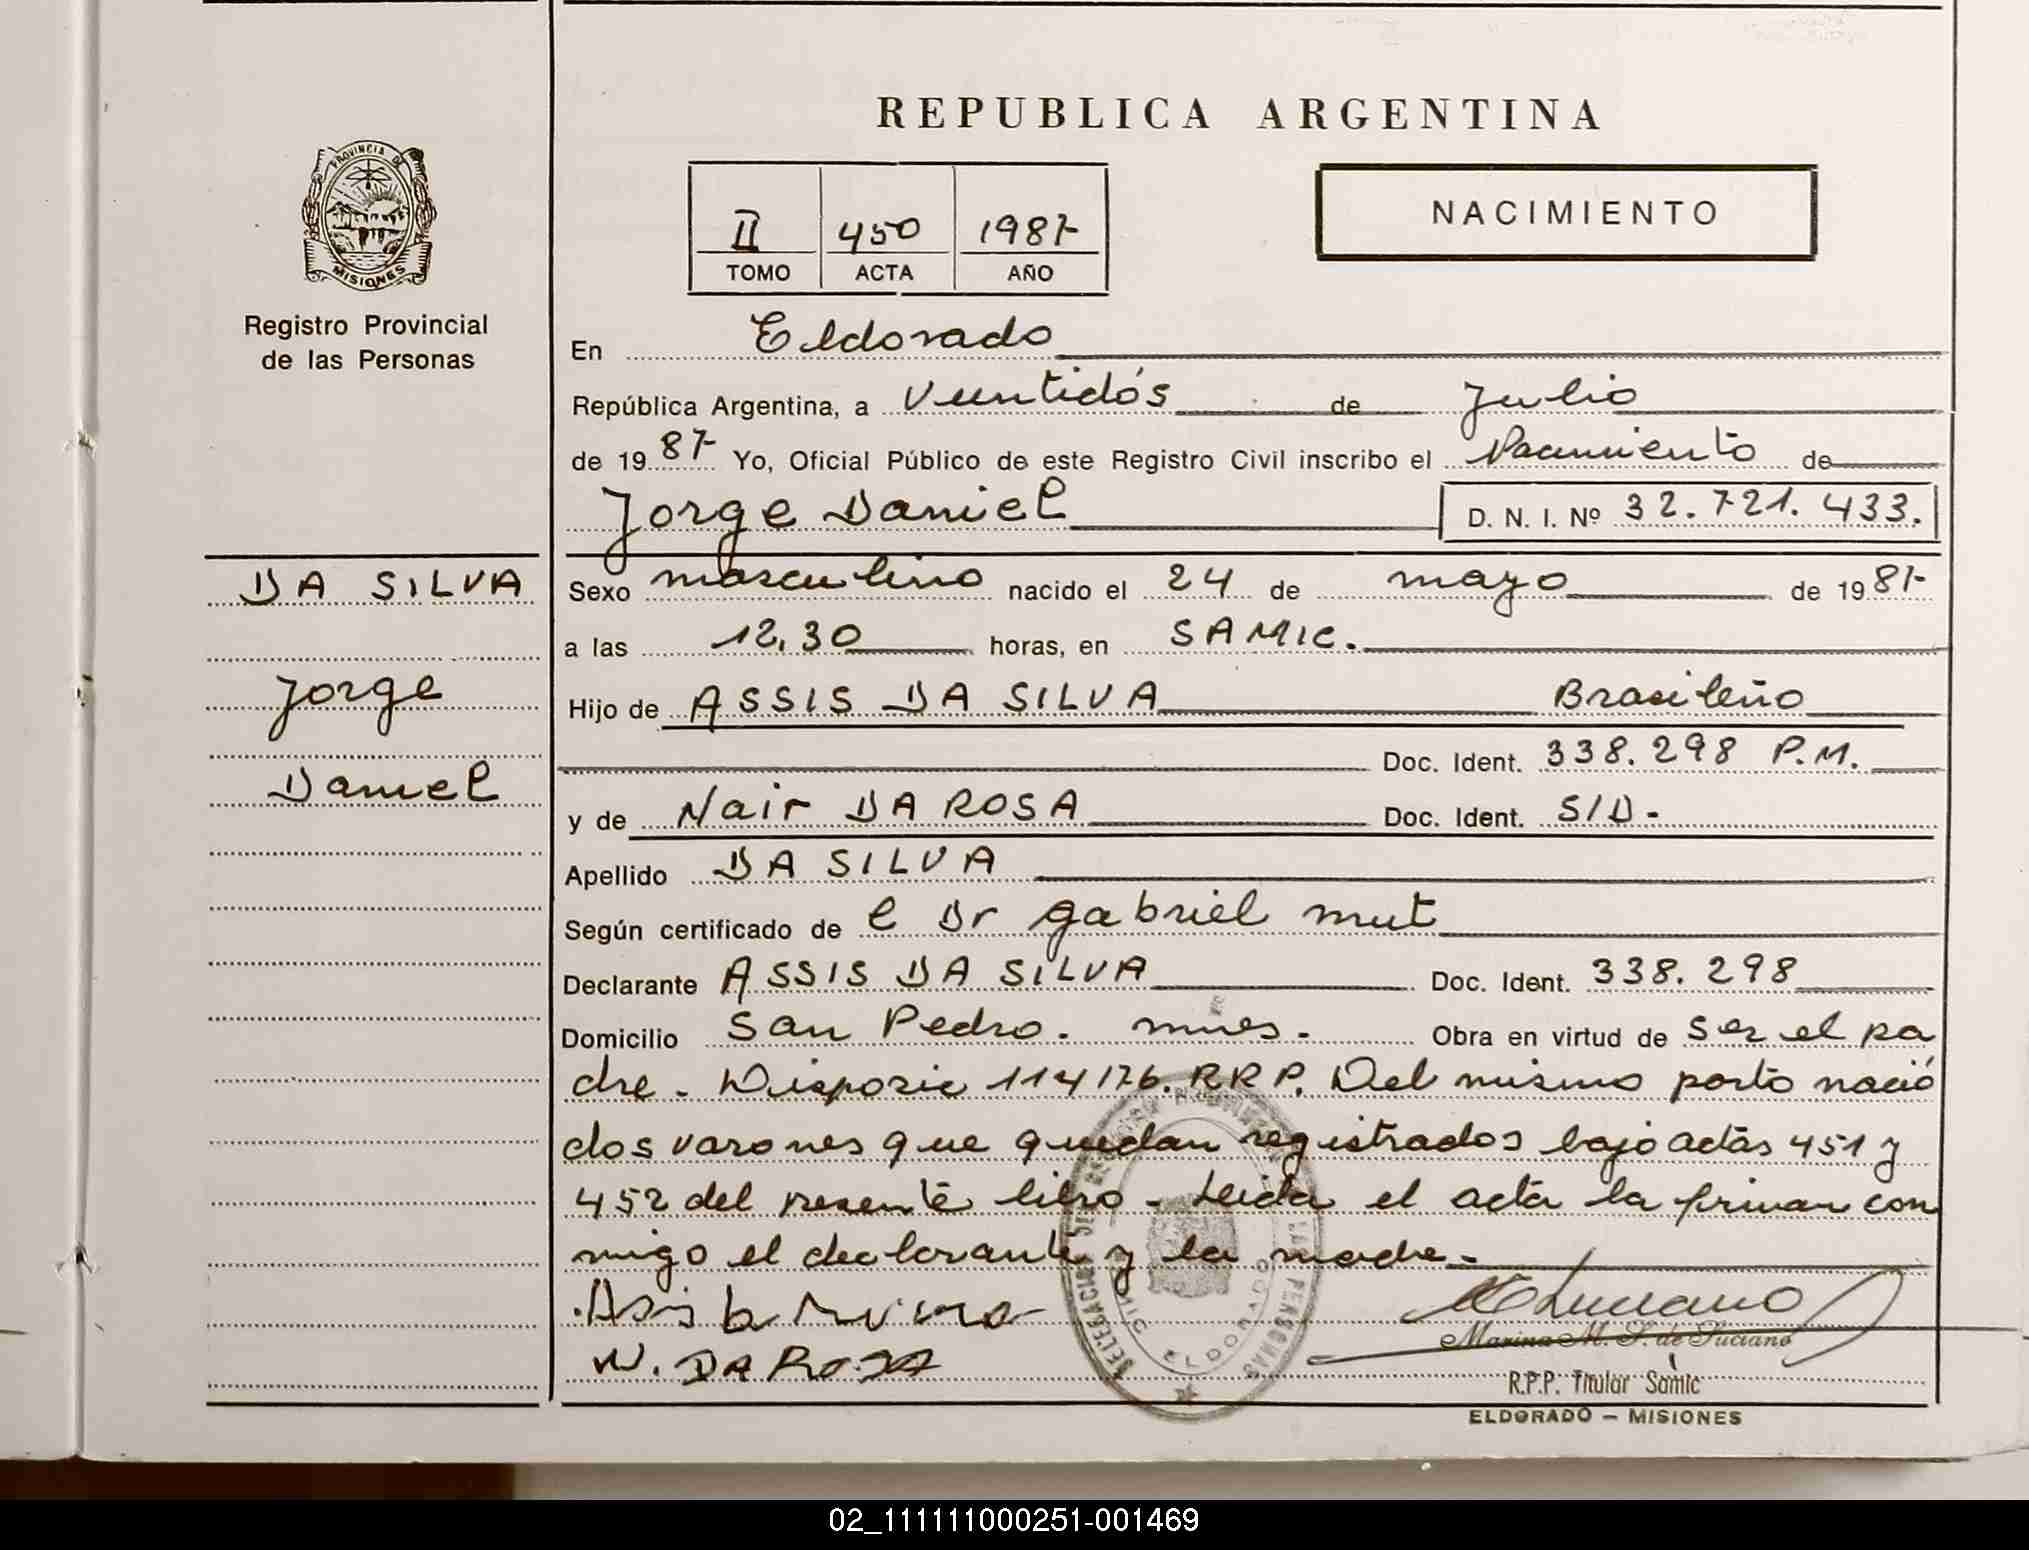 REPUBLICA ARGENTINA
PROVINCIA DE
MISIONES
Registro Provincial
de las Personas
II 450 1987
TOMO ACTA AÑO
NACIMIENTO
En Eldorado
República Argentina, a Veintidós de Julio
de 1987 Yo, Oficial Público de este Registro Civil inscribo el Nacimiento de
Jorge Daniel D. N. I. Nº 32.721.433.
DA SILVA
Jorge
Daniel
Sexo masculino nacido el 24 de mayo de 1987
a las 12,30 horas, en SAMIC.
Hijo de ASSIS DA SILVA Brasileño
Doc. Ident. 338.298 P.M.
y de Nair DA ROSA Doc. Ident. S/D-
Apellido DA SILVA
Según certificado de el Dr gabriel mut
Declarante ASSIS DA SILVA Doc. Ident. 338.298
Domicilio San Pedro. mnes. Obra en virtud de ser el pa
dre. Disposic 114/76. RRP. Del mismo parto nació
dos varones que quedan registrados bajo actas 451 y
452 del presente libro. Leida el acta la firman con
migo el declarante y la madre.
N. DA ROSA
Luciano
Marina M. S. de Luciano
R.P.P. Titular Samic
ELDORADO - MISIONES
ELDORADO
02_111111000251-001469